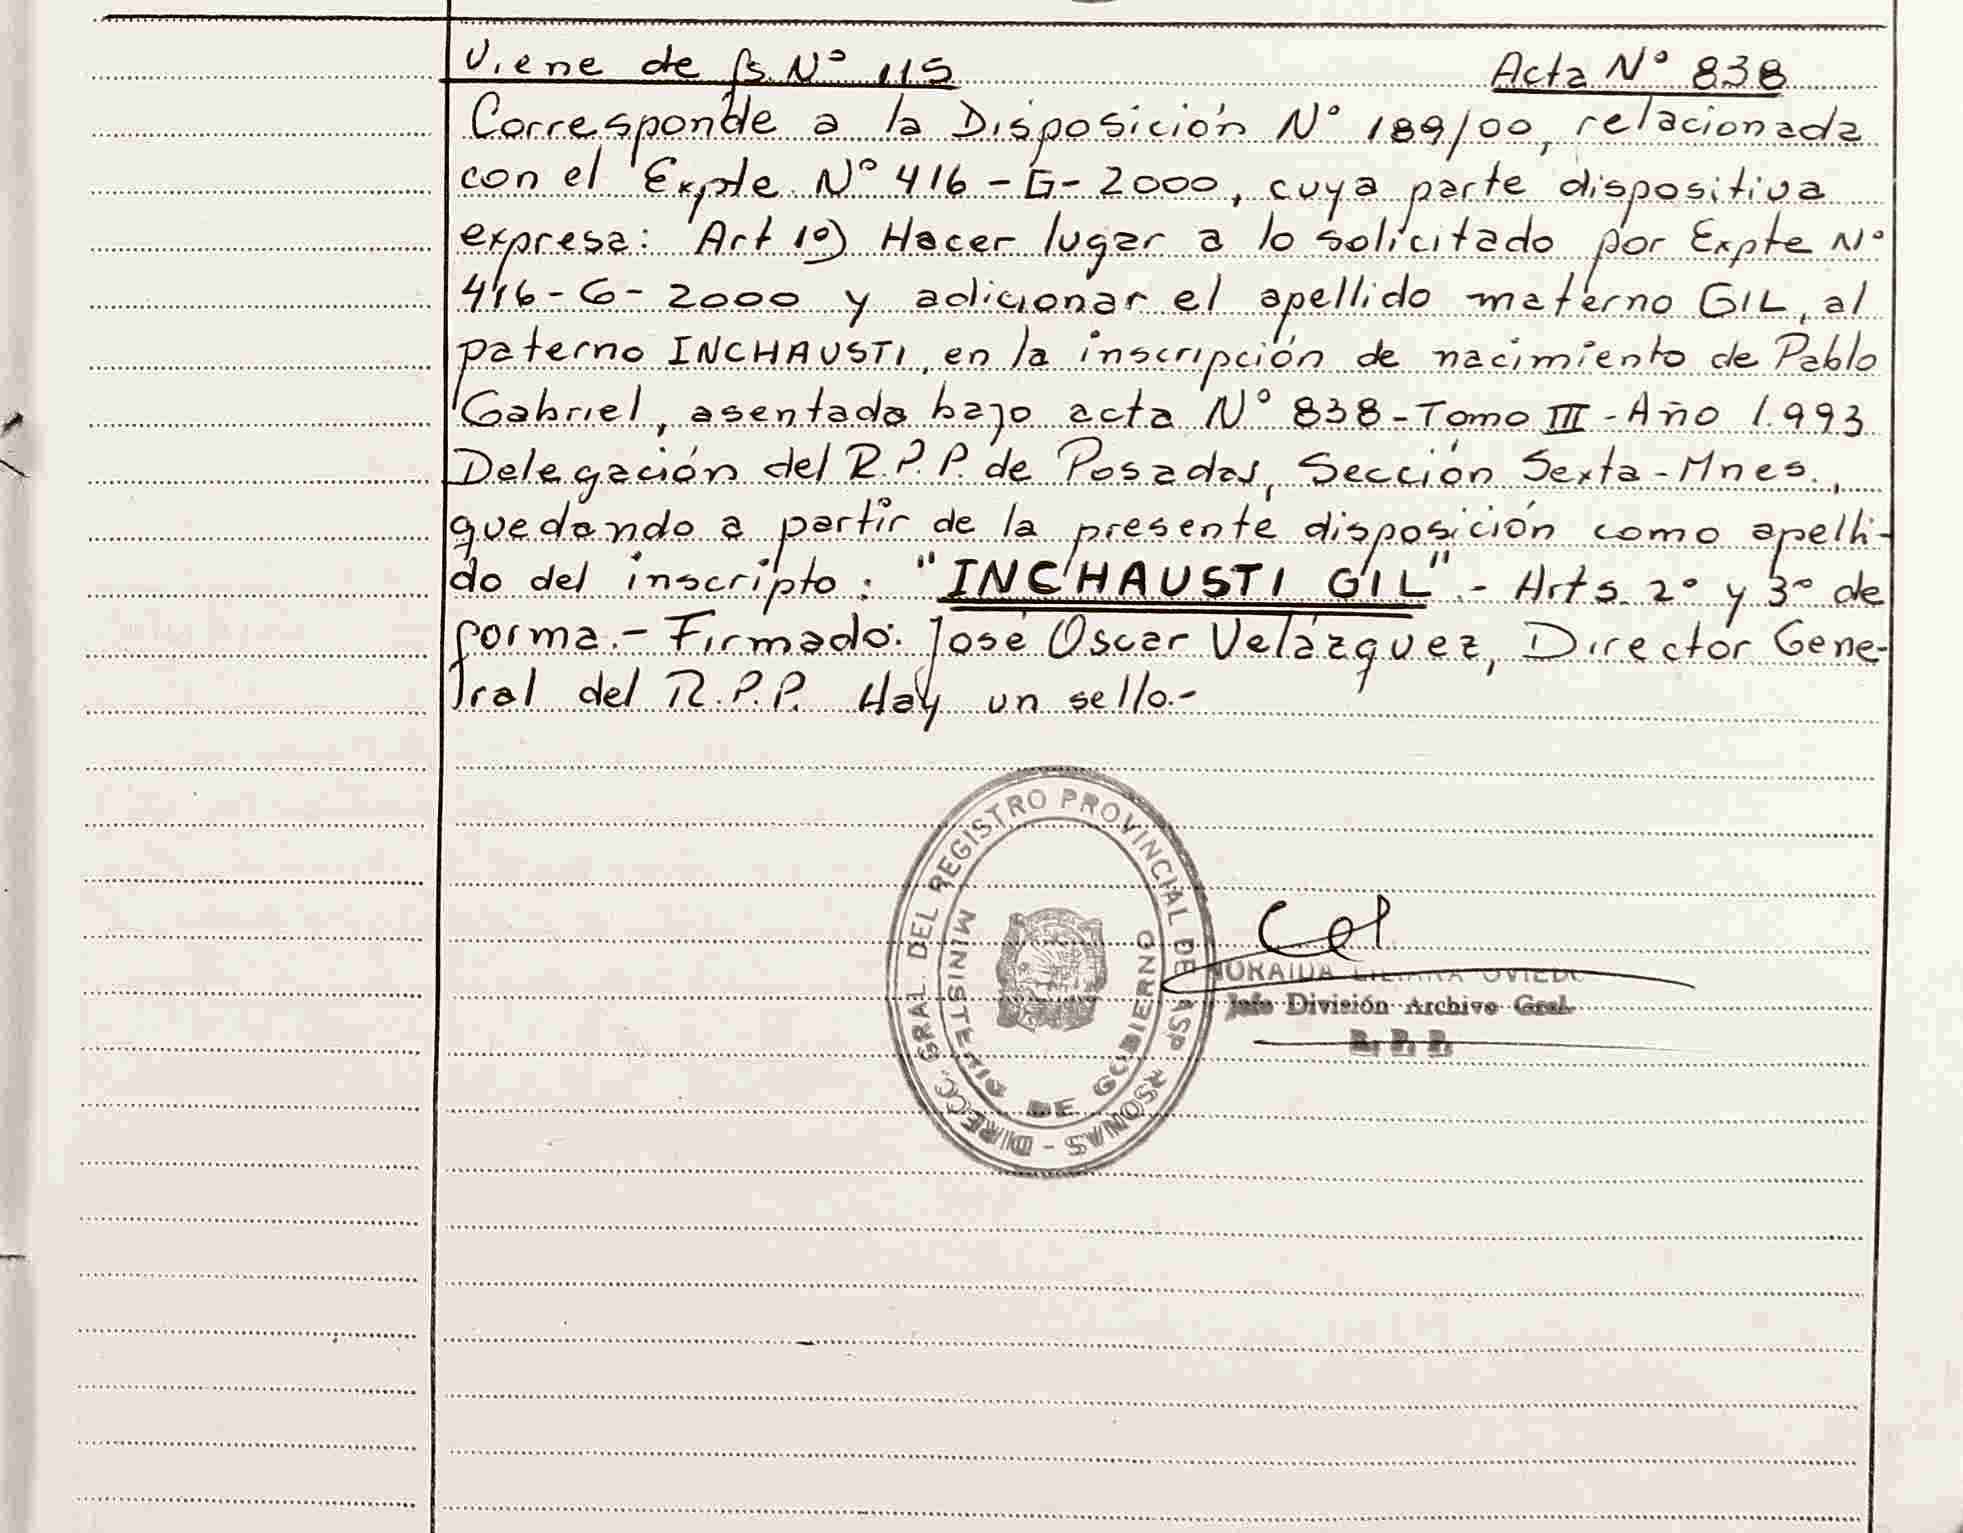 Viene de fs. Nº 115 Acta Nº 838
Corresponde a la Disposición Nº 189/00, relacionada
con el Expte Nº 416-G-2000, cuya parte dispositiva
expresa: Art 1º) Hacer lugar a lo solicitado por Expte Nº
416-G-2000 y adicionar el apellido materno GIL, al
paterno INCHAUSTI, en la inscripción de nacimiento de Pablo
Gabriel, asentada bajo acta Nº 838-Tomo III-Año 1.993
Delegación del R.P.P. de Posadas, Sección Sexta-Mnes.,
quedando a partir de la presente disposición como apelli-
do del inscripto: "INCHAUSTI GIL".- Arts. 2º y 3º de
forma.- Firmado: José Oscar Velázquez, Director Gene-
ral del R.P.P. Hay un sello.-
DIRECC. GRAL. DEL REGISTRO PROVINCIAL DE LAS PERSONAS -
MINISTERIO DE GOBIERNO
LILIANA OVIEDO
Jefe División Archivo Gral.
R. P. P.